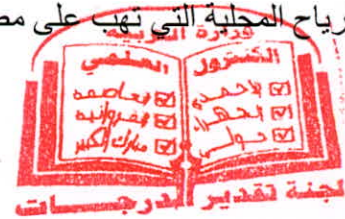 رياح المحلية التي تهب على مص
وزارة التربية
الكنترول العلمي
الأحمدي العاصمة
الجهراء الفروانية
حولي مبارك الكبير
لجنة تقدير الدرجات